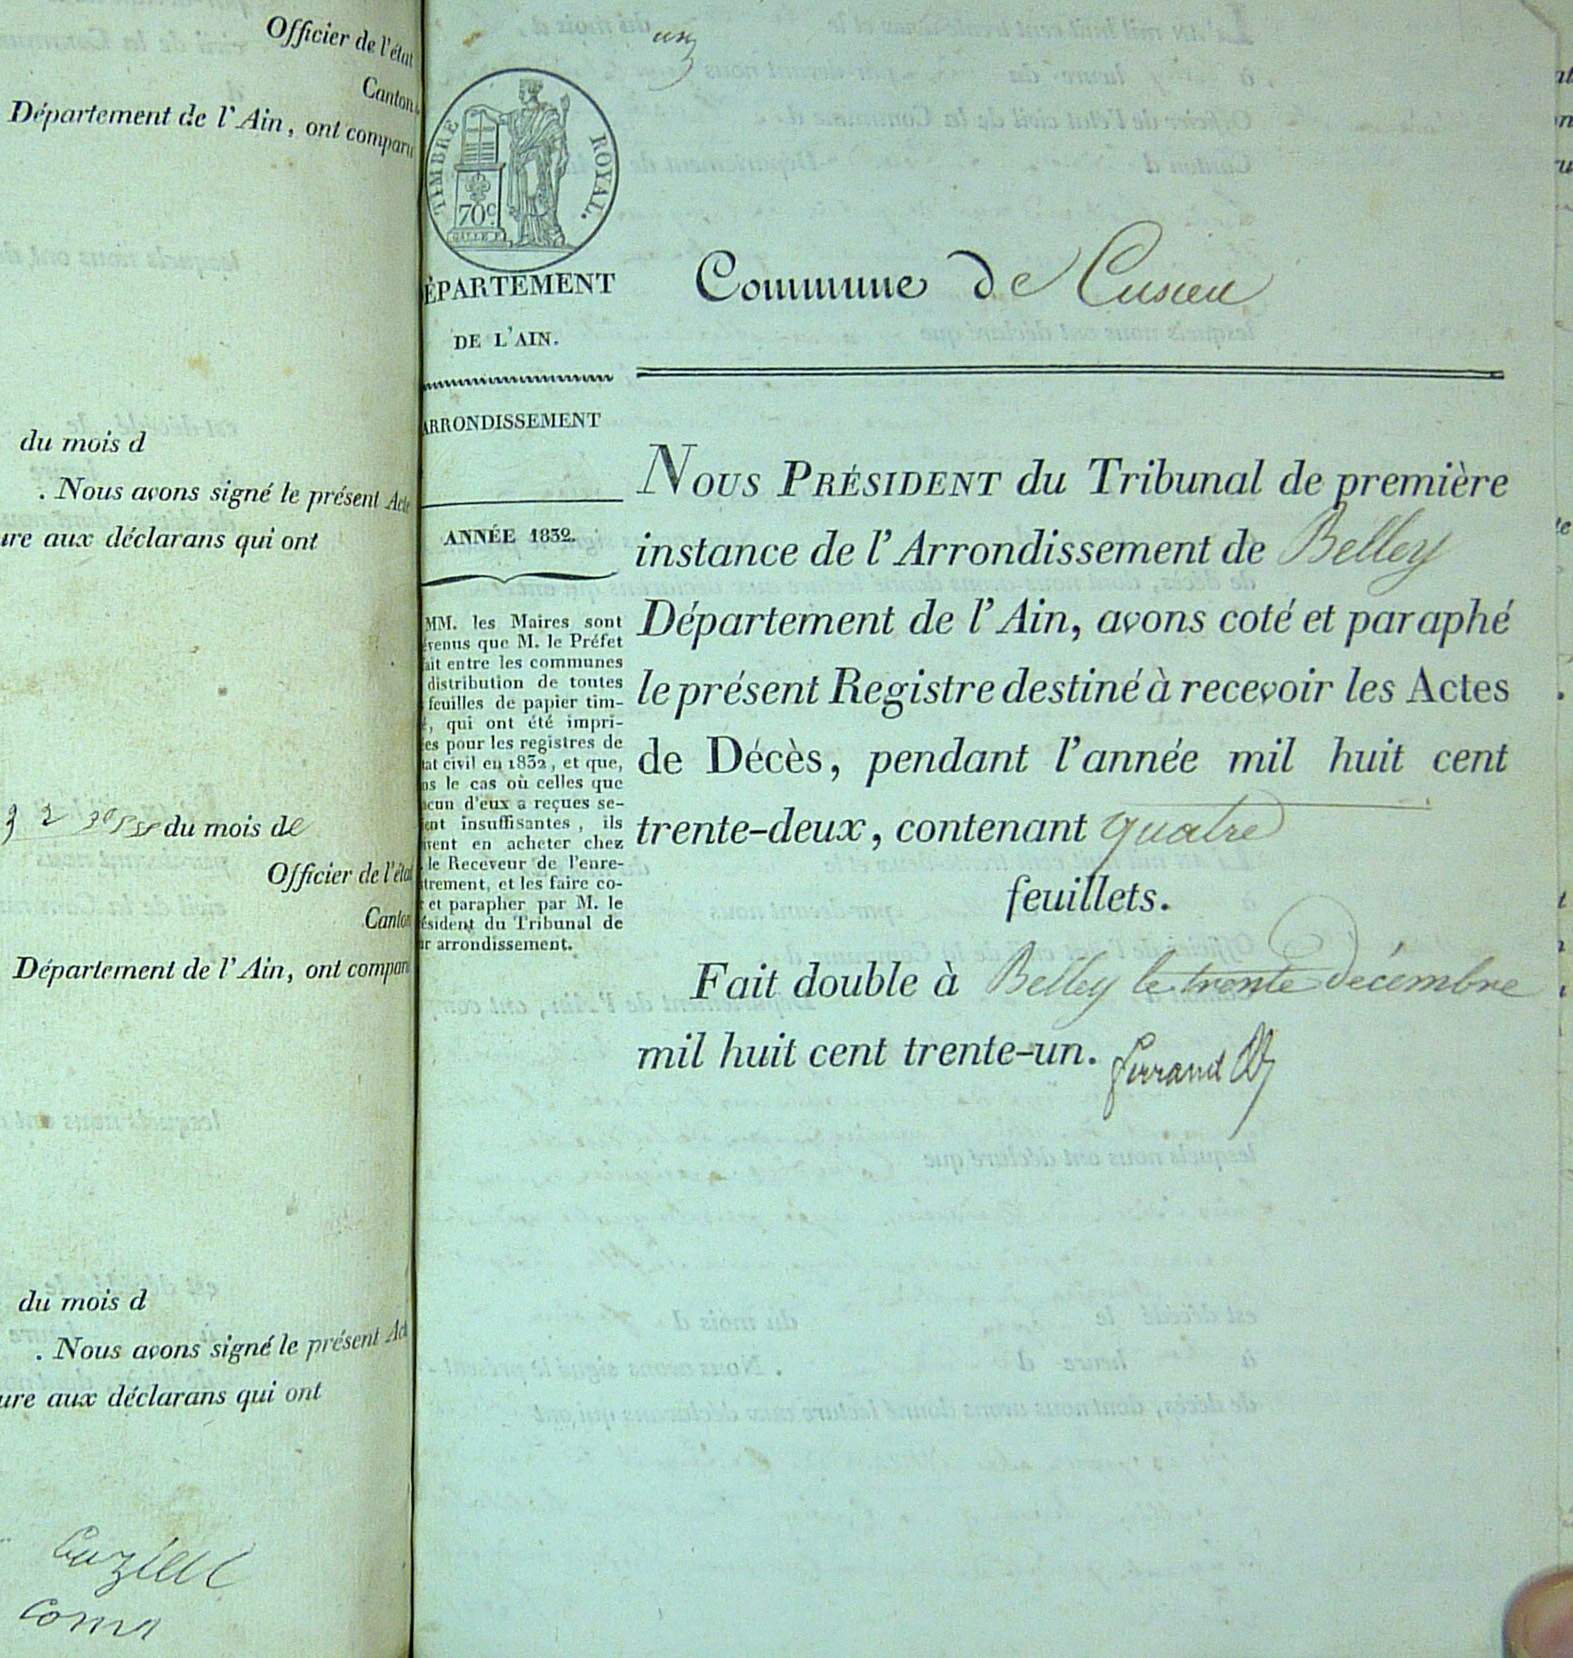 Officier de l'état
Canton
Département de l'Ain, ont comparu
du mois d
. Nous avons signé le présent Acte
ure aux déclarans qui ont
du mois de
Officier de l'état
Canton
Département de l'Ain, ont comparu
du mois d
. Nous avons signé le présent Act
ure aux déclarans qui ont
TIMBRE ROYAL.
70c.
ÉPARTEMENT
DE L'AIN.
ARRONDISSEMENT
ANNÉE 1832.
MM. les Maires sont
évenus que M. le Préfet
ait entre les communes
distribution de toutes
feuilles de papier tim-
é, qui ont été impri-
ées pour les registres de
tat civil en 1832, et que,
ns le cas où celles que
acun d'eux a reçues se-
ent insuffisantes, ils
ivent en acheter chez
le Receveur de l'enre-
trement, et les faire co-
r et parapher par M. le
ésident du Tribunal de
ur arrondissement.
Commune de Cusieu
NOUS PRÉSIDENT du Tribunal de première
instance de l'Arrondissement de Belley
Département de l'Ain, avons coté et paraphé
le présent Registre destiné à recevoir les Actes
de Décès, pendant l'année mil huit cent
trente-deux, contenant quatre
feuillets.
Fait double à Belley le trente décembre
mil huit cent trente-un.